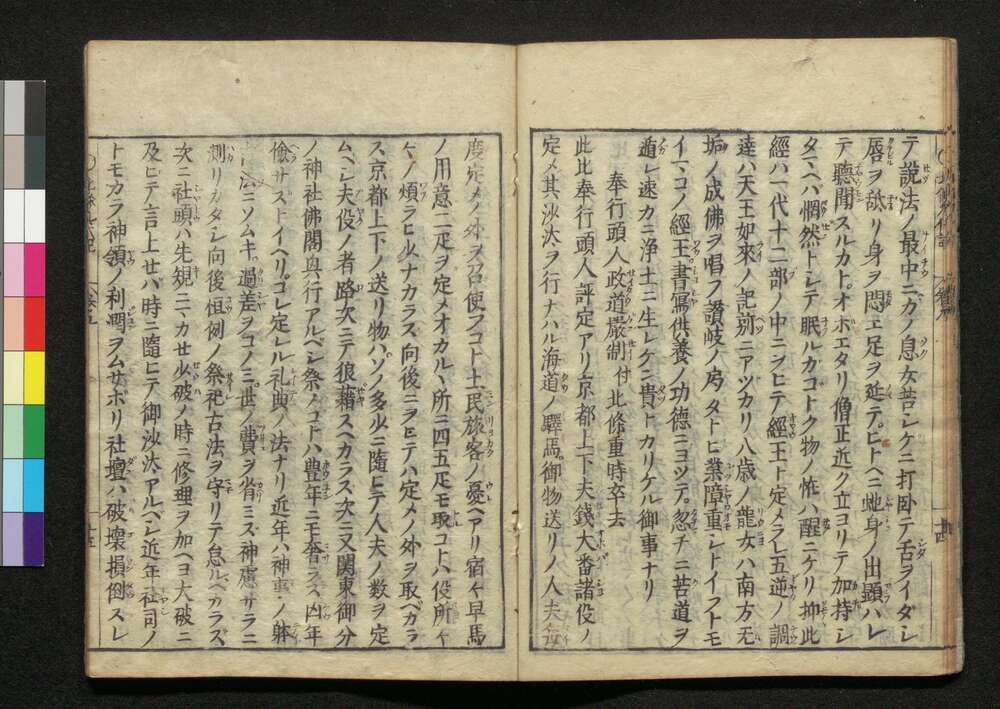 テ說法ノ最中ニカノ息女苦レケニ打卧テ舌ヲイダシ
唇ヲ舐リ身ヲ悶エ足ヲ延テヒトヘニ虵身ノ出顕ハレ
テ聽聞スルカトオホエタリ僧正近ク立ヨリテ加持シ
タマヘハ惘然トシテ眠ルカゴトク物ノ恠ハ醒ニケリ抑此
經ハ一代十二部ノ中ニヲヒテ經王ト定メラレ五逆ノ調
達ハ天王如來ノ記莂ニアツカリ八歳ノ龍女ハ南方无
垢ノ成佛ヲ唱フ讃岐ノ局タトヒ業障重シトイフトモ
イマコノ經王書寫供養ノ功德ニヨツテ忽チニ苦道ヲ
遁レ速カニ浄土ニ生レケン貴トカリケル御事ナリ
奉行頭人政道嚴制付北條重時卒去
此比奉行頭人評定アリ京都上下夫錢大番諸役ノ
定メ其沙汰ヲ行ナハル海道ノ驛馬御物送リノ人夫毎
度定メノ外ヲ召使フコト土民旅客ノ憂ヘアリ宿々早馬
ノ用意二疋ヲ定メオカルヽ所ニ四五疋モ取コトハ役所々
々ノ煩ラヒ少ナカラス向後ニヲヒテハ定メノ外ヲ取ベカラ
ス京都上下ノ送リ物ハソノ多少ニ隨ヒテ人夫ノ数ヲ定
ムヘシ夫役ノ者路次ニテ狼藉スヘカラス次ニ又関東御分
ノ神社佛閣與行アルベシ祭ノコトハ豊年ニモ奢ラス凶年
儉サストイヘリコレ定レル礼典ノ法ナリ近年ハ神事ノ躰
法ニソムキ過差ヲコノミ世ノ費ヲ省ミズ神慮サラニ
測リカタシ向後恒例ノ祭祀古法ヲ守リテ怠ルベカラズ
次ニ社頭ハ先規ニマカせ少破ノ時ニ修理ヲ加ヘヨ大破ニ
及ヒテ言上せハ時ニ隨ヒテ御沙汰アルベシ近年社司ノ
トモカラ神領ノ利潤ヲムサボリ社壇ハ破壞損倒スレ